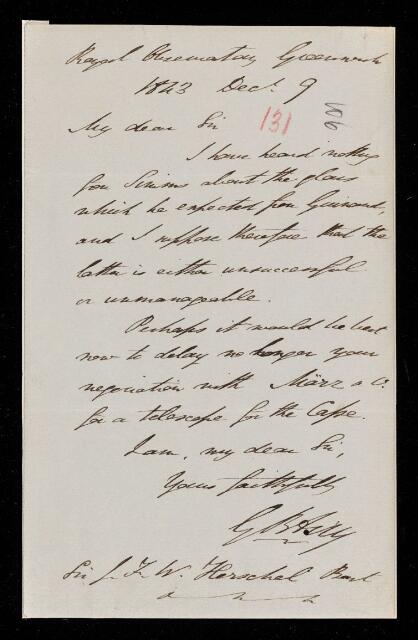 Royal Observatory Greenwich
1843 Dec. 9
131
106
My dear Sir
I have heard nothing
from Simms about the glass
which he expected from Guinand,
and I suppose therefore that the
latter is either unsuccessful
or unmanageable.
Perhaps it would be best
now to delay no longer your
negociation with März & Co.
for a telescope for the Cape.
I am, my dear Sir,
Yours faithfully
G B Airy
Sir J. F. W. Herschel Bart